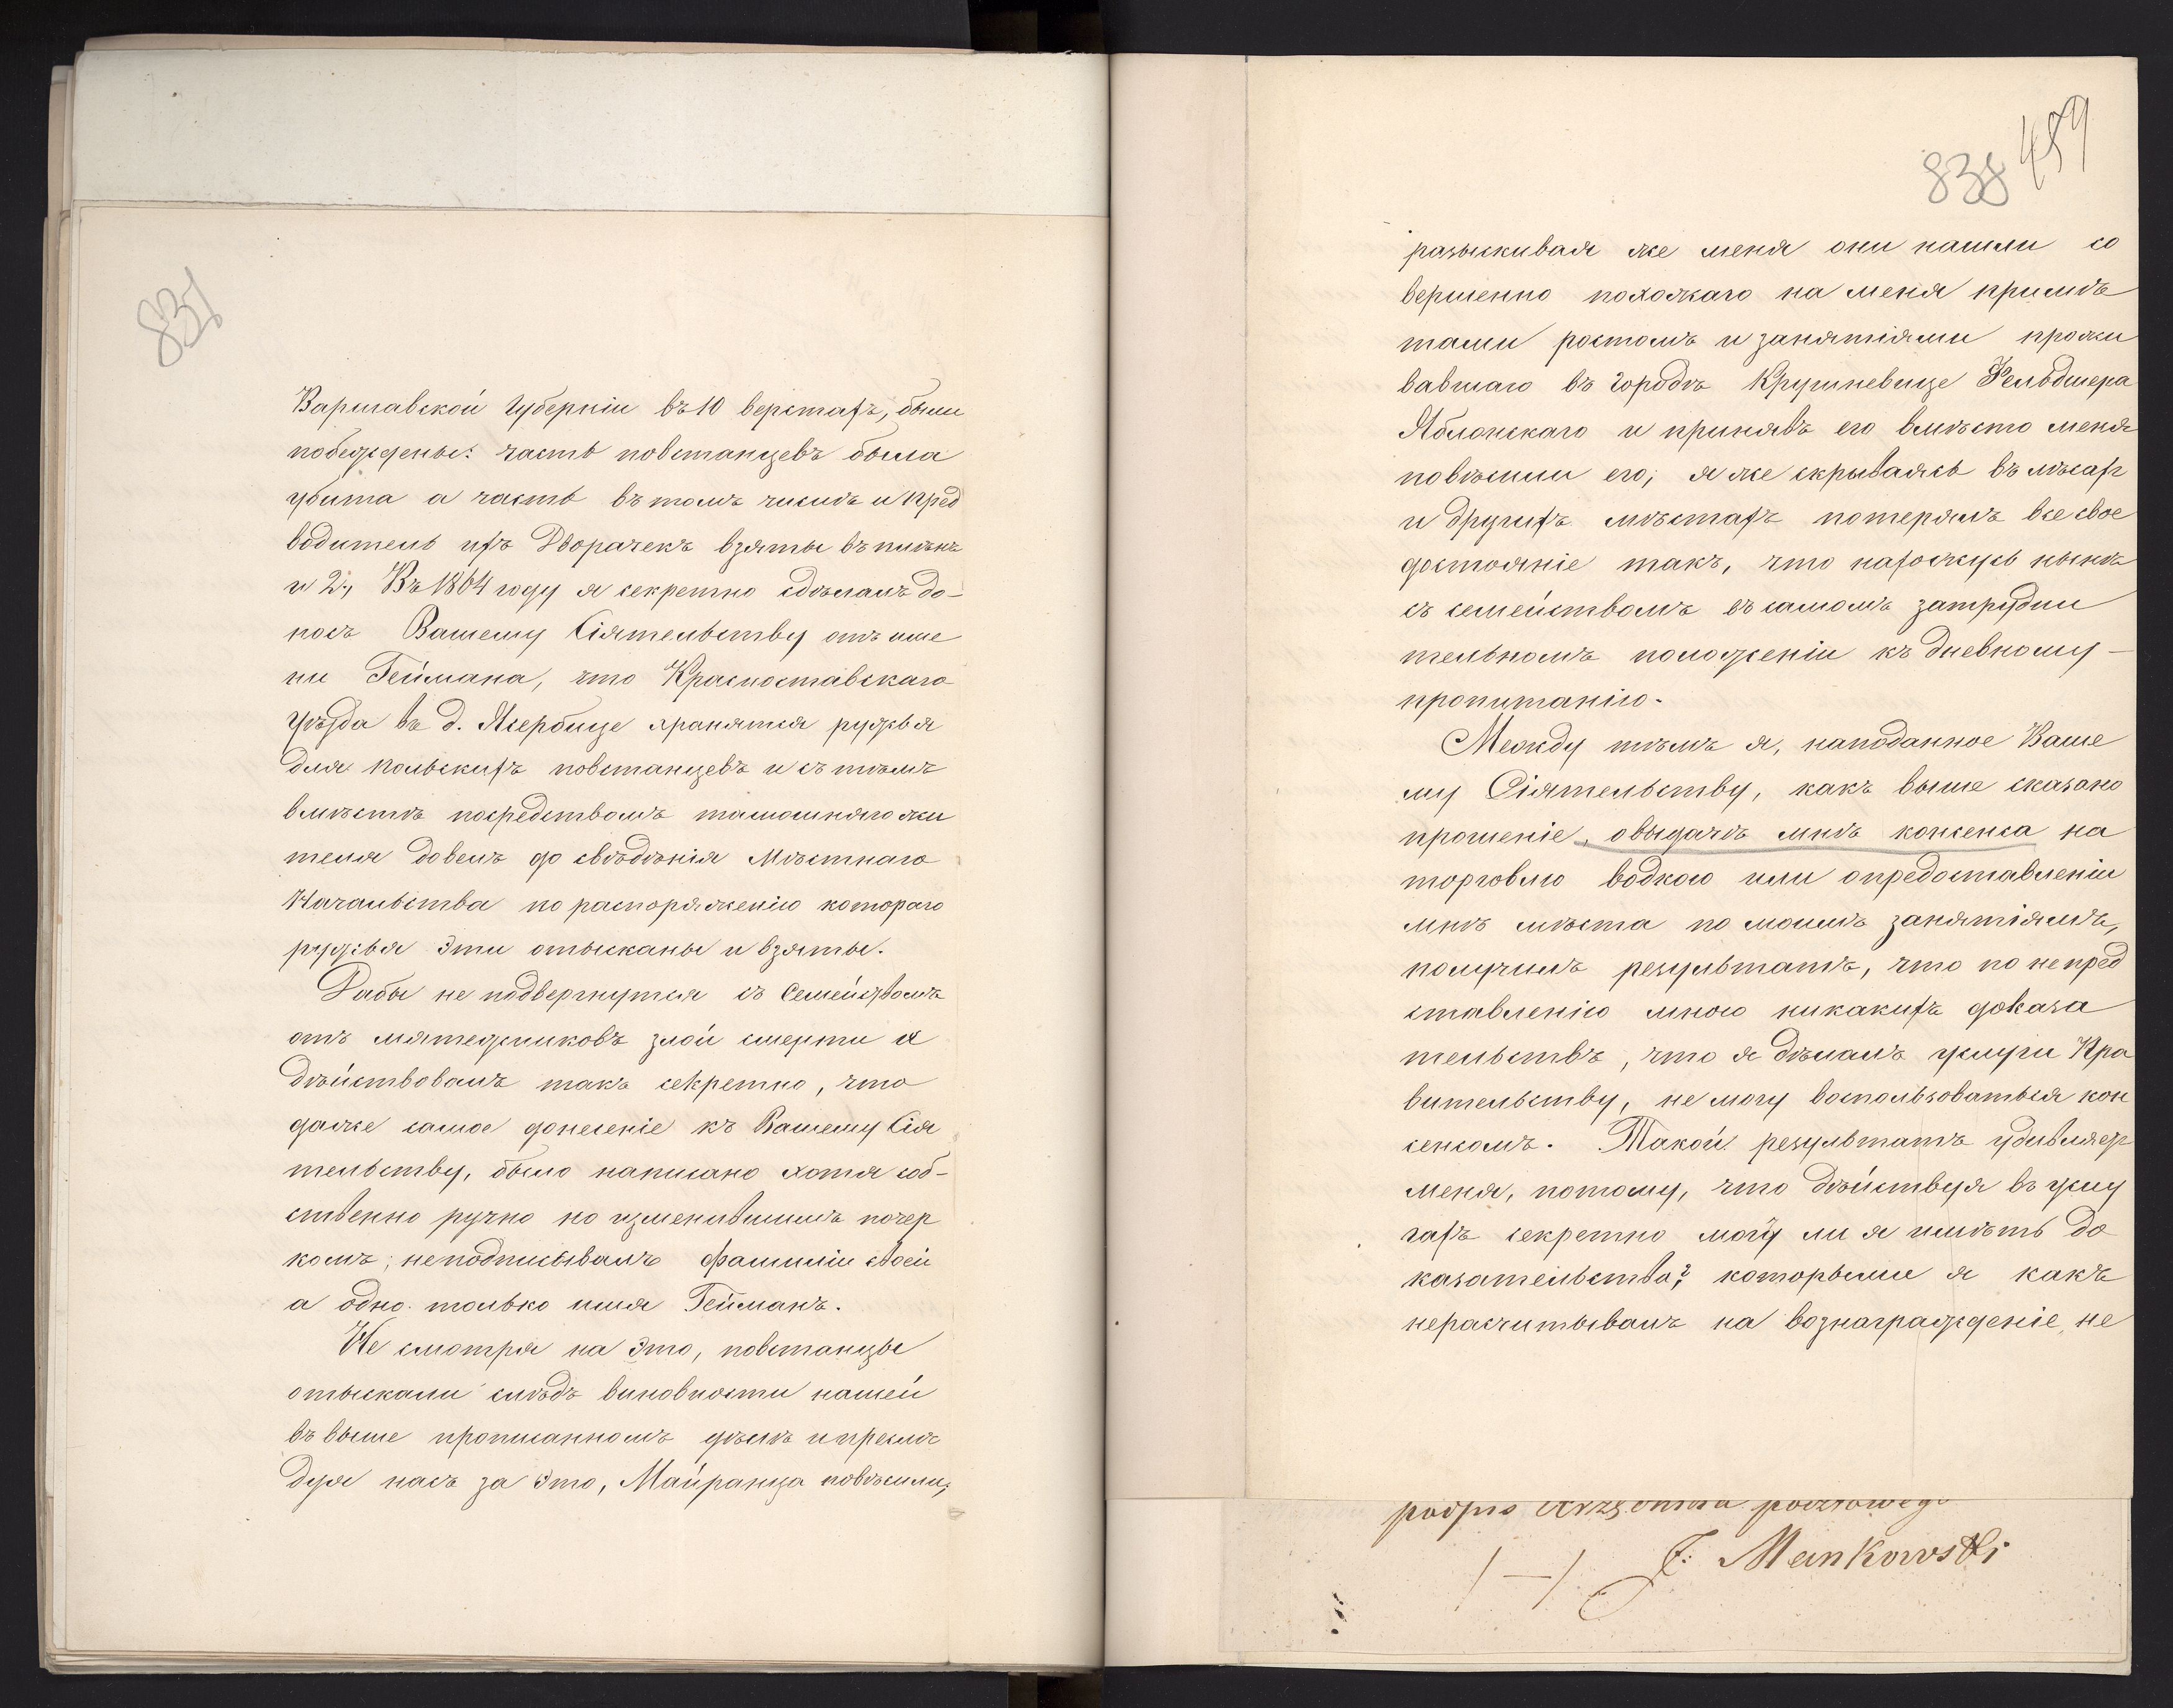 831
Варшавской Губерніи въ 10 верстахъ, были
побеждены: часть повстанцевъ была
убита а часть въ томъ числѣ и пред
водитель ихъ Дворачекъ взяты въ плѣнъ
и 2., Въ 1864 году я секретно сдѣлалъ до-
носъ Вашему Сіятельству отъ име
ни Геймана, что Красноставскаго
Уѣзда въ д. Ясербице хранятся ружья
для польскихъ повстанцевъ и съ тѣмъ
вмѣстѣ посредствомъ тамошняго жи
теля довелъ до свѣдѣнія Мѣстнаго
Начальства по распоряженію котораго
ружья эти отысканы и взяты.
Дабы не подвергнутся съ Семействомъ
отъ мятежниковъ злой смерти я
дѣйствовалъ такъ секретно, что
даже самое донесеніе къ Вашему Сія
тельству, было написано хотя соб-
ственно ручно но изменившимъ почер
комъ; не подписывалъ фамиліи своей
а одно только имя Гейманъ.
Не смотря на это, повстанцы
отыскали слѣдъ виновности нашей
въ выше прописанномъ дѣлѣ и преслѣ
дуя насъ за это, Майранца повѣсили,
838 459
разыскивая же меня они нашли со
вершенно похожаго на меня примѣ
тами ростомъ и занятіями прожи
вавшаго въ городѣ Крушневице Фельдшера
Яблонскаго и принявъ его вмѣсто меня
повѣсили его; я же скрываясь въ лѣсах
и другихъ мѣстахъ потерялъ все свое
достояніе такъ, что нахожусь нынѣ
съ семействомъ въ самомъ затрудни
тельномъ положеніи къ дневному-
пропитанію.
Между тѣмъ я, на поданное Ваше
му Сіятельству, какъ выше сказано
прошеніе, о выдачѣ мнѣ консенса на
торговлю водкою или о предоставленіи
мнѣ мѣста по моимъ занятіямъ,
получилъ результатъ, что по не пред
ставленію мною никакихъ доказа
тельствъ, что я дѣлалъ услуги Пра
вительству, не могу воспользоваться кон
сенсомъ. Такой результатъ удивляет
меня, потому, что дѣйствуя въ услу
гахъ секретно могу ли я имѣть до
казательства? которыми я какъ
нерасчитывалъ на вознагражденіе, не
podpis pocztowego
J: Mankowski